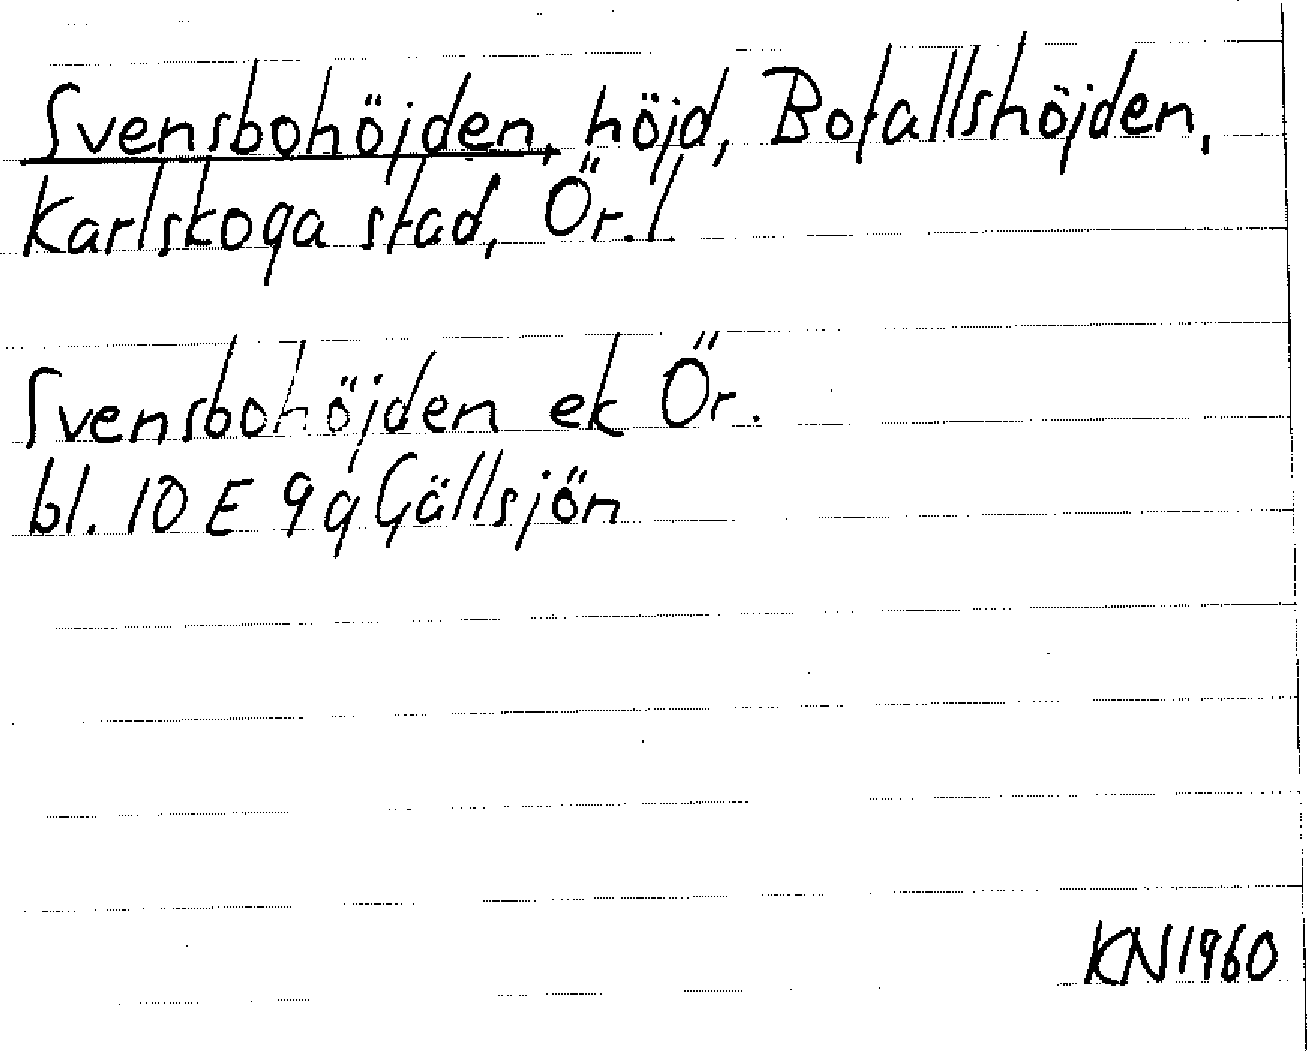 Svensbohöjden, höjd, Bofallshöjden,
Karlskoga stad, Ör. l
Svensbohöjden ek Ör.
bl. 10 E 9 g Gällsjön
KN 1960